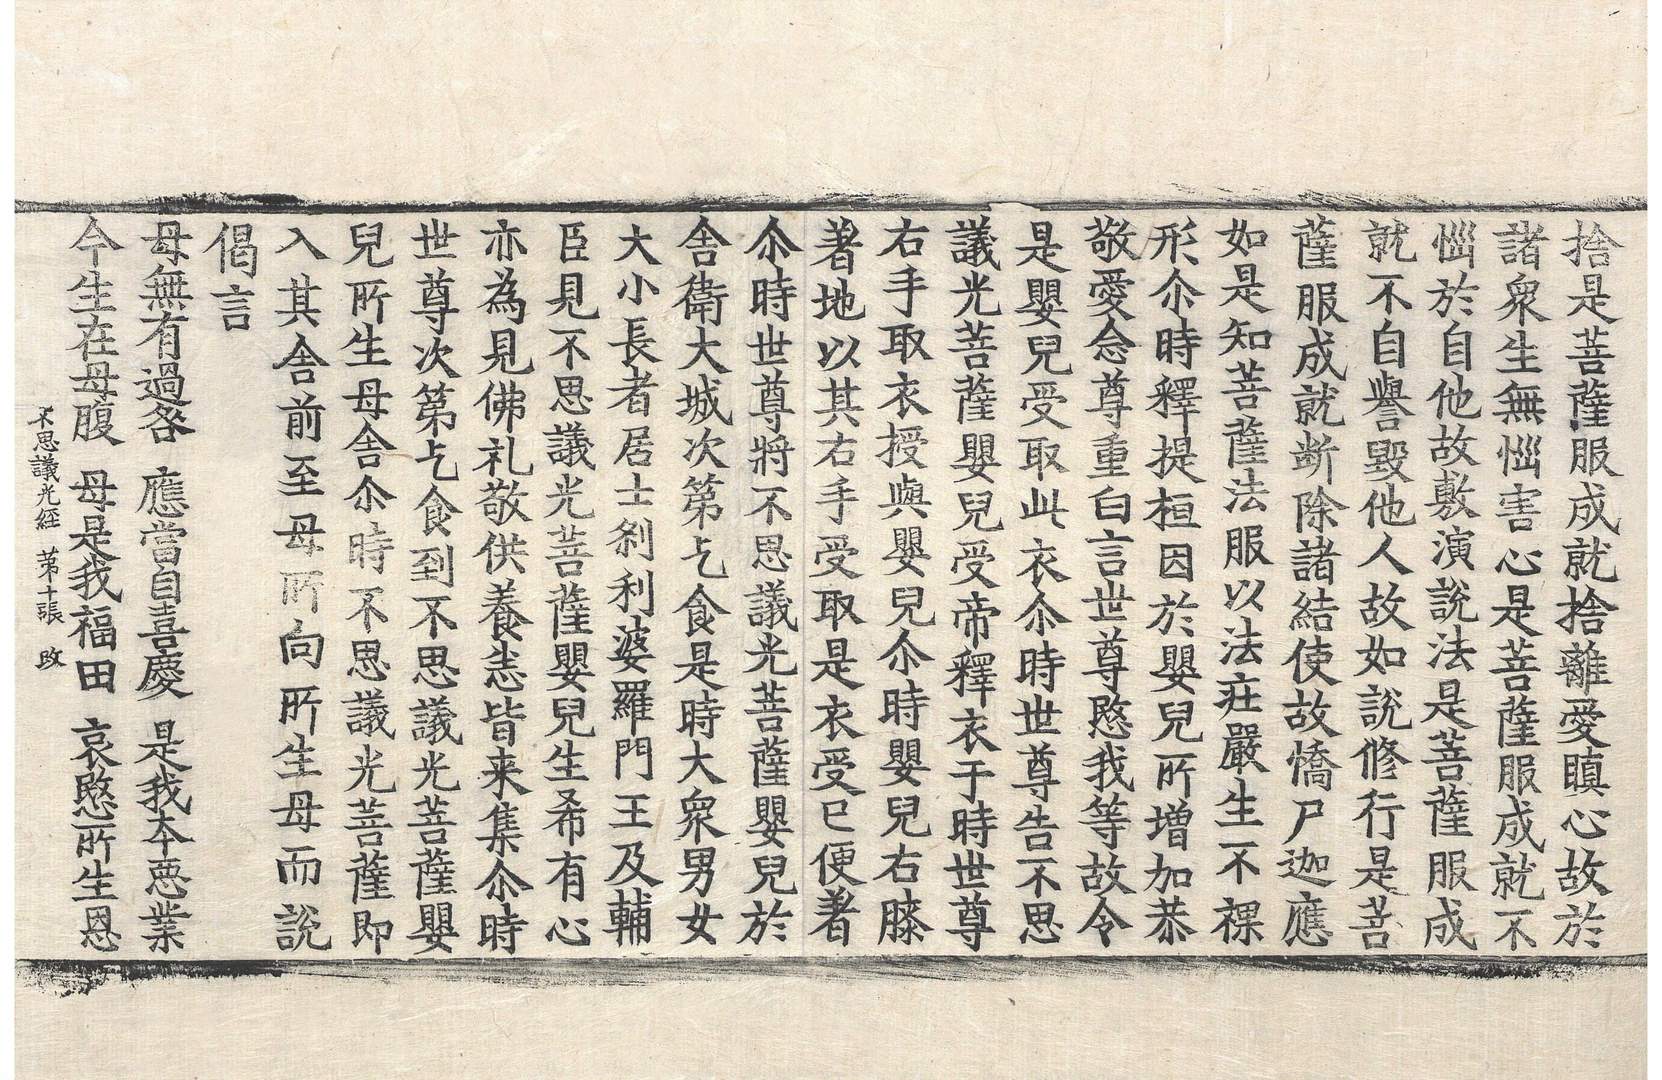 捨是菩薩服成就捨離愛瞋心故於
諸衆生無惱害心是菩薩服成就不
惱於自他故敷演説法是菩薩服成
就不自譽毀他人故如説修行是菩
薩服成就断除諸結使故憍尸迦應
如是知菩薩法服以法庄嚴生不裸
形尒時釋提桓因於嬰兒所增加恭
敬愛念尊重白言世尊愍我等故令
是嬰兒受取此衣尒時世尊告不思
議光菩薩嬰兒受帝釋衣于時世尊
右手取衣授與嬰兒尒時嬰兒右膝
著地以其右手受取是衣受已便著
尒時世尊將不思議光菩薩嬰兒於
舍衛大城次第乞食是時大衆男女
大小長者居士刹利婆羅門王及輔
臣見不思議光菩薩嬰兒生希有心
亦為見佛礼敬供養恚皆来集尒時
世尊次第乞食到不思議光菩薩嬰
兒所生母舍尒時不思議光菩薩即
入其舍前至母所向所生母而説
偈言
母無有過咎 應當自喜慶 是我本惡業
今生在母腹 母是我福田 哀愍所生恩
不思議光經 第十張 改